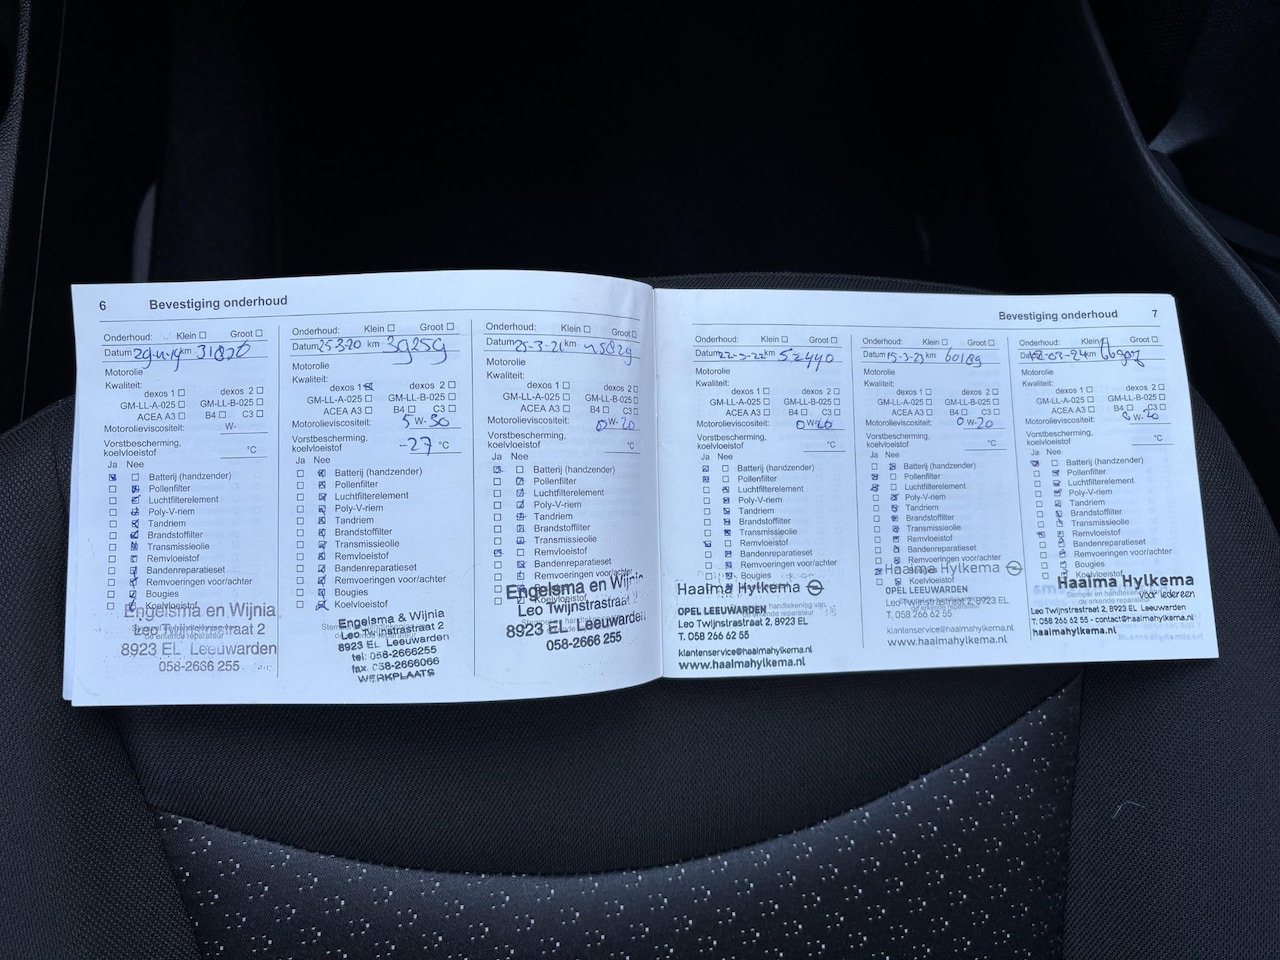 6 Bevestiging onderhoud
Onderhoud: Klein Groot
Datum 29-11-19 km 31820
Motorolie
Kwaliteit:
dexos 1 dexos 2
GM-LL-A-025 GM-LL-B-025
ACEA A3 B4 C3
Motorolieviscositeit: W-
Vorstbescherming,
koelvloeistof °C
Ja Nee
Batterij (handzender)
Pollenfilter
Luchtfilterelement
Poly-V-riem
Tandriem
Brandstoffilter
Transmissieolie
Remvloeistof
Bandenreparatieset
Remvoeringen voor/achter
Bougies
Koelvloeistof
Engelsma en Wijnia
Leo Twijnstraat 2
8923 EL Leeuwarden
058-2666 255
Onderhoud: Klein Groot
Datum 25-3-20 km 39259
Motorolie
Kwaliteit:
dexos 1 dexos 2
GM-LL-A-025 GM-LL-B-025
ACEA A3 B4 C3
Motorolieviscositeit: 5 W- 30
Vorstbescherming,
koelvloeistof -27 °C
Ja Nee
Batterij (handzender)
Pollenfilter
Luchtfilterelement
Poly-V-riem
Tandriem
Brandstoffilter
Transmissieolie
Remvloeistof
Bandenreparatieset
Remvoeringen voor/achter
Bougies
Koelvloeistof
Engelsma & Wijnia
Leo Twijnstrastraat 2
8923 EL Leeuwarden
tel: 058-2666255
fax: 058-2666066
WERKPLAATS
Onderhoud: Klein Groot
Datum 25-3-21 km 45829
Motorolie
Kwaliteit:
dexos 1 dexos 2
GM-LL-A-025 GM-LL-B-025
ACEA A3 B4 C3
Motorolieviscositeit: 0 W- 20
Vorstbescherming,
koelvloeistof °C
Ja Nee
Batterij (handzender)
Pollenfilter
Luchtfilterelement
Poly-V-riem
Tandriem
Brandstoffilter
Transmissieolie
Remvloeistof
Bandenreparatieset
Remvoeringen voor/achter
Bougies
Koelvloeistof
Engelsma en Wijnia
Leo Twijnstrastraat
8923 EL Leeuwarden
058-2666 255
Bevestiging onderhoud 7
Onderhoud: Klein Groot
Datum 22-3-22 km 52440
Motorolie
Kwaliteit:
dexos 1 dexos 2
GM-LL-A-025 GM-LL-B-025
ACEA A3 B4 C3
Motorolieviscositeit: 0 W- 20
Vorstbescherming,
koelvloeistof °C
Ja Nee
Batterij (handzender)
Pollenfilter
Luchtfilterelement
Poly-V-riem
Tandriem
Brandstoffilter
Transmissieolie
Remvloeistof
Bandenreparatieset
Remvoeringen voor/achter
Bougies
Haaima Hylkema
OPEL LEEUWARDEN
Leo Twijnstrastraat 2, 8923 EL
T. 058 266 62 55
klantenservice@haaimahylkema.nl
www.haaimahylkema.nl
Onderhoud: Klein Groot
Datum 15-3-23 km 60189
Motorolie
Kwaliteit:
dexos 1 dexos 2
GM-LL-A-025 GM-LL-B-025
ACEA A3 B4 C3
Motorolieviscositeit: 0 W- 20
Vorstbescherming,
koelvloeistof °C
Ja Nee
Batterij (handzender)
Pollenfilter
Luchtfilterelement
Poly-V-riem
Tandriem
Brandstoffilter
Transmissieolie
Remvloeistof
Bandenreparatieset
Remvoeringen voor/achter
Bougies
Koelvloeistof
Haaima Hylkema
OPEL LEEUWARDEN
Leo Twijnstrastraat 2, 8923 EL
T. 058 266 62 55
klantenservice@haaimahylkema.nl
www.haaimahylkema.nl
Onderhoud: Klein Groot
Datum 12-03-24 km
Motorolie
Kwaliteit:
dexos 1 dexos 2
GM-LL-A-025 GM-LL-B-025
ACEA A3 B4 C3
Motorolieviscositeit: 0 W- 20
Vorstbescherming,
koelvloeistof °C
Ja Nee
Batterij (handzender)
Pollenfilter
Luchtfilterelement
Poly-V-riem
Tandriem
Brandstoffilter
Transmissieolie
Remvloeistof
Bandenreparatieset
Remvoeringen voor/achter
Bougies
Koelvloeistof
Haaima Hylkema
voor iedereen
Leo Twijnstrastraat 2, 8923 EL Leeuwarden
T. 058 266 62 55 - contact@haaimahylkema.nl
haaimahylkema.nl